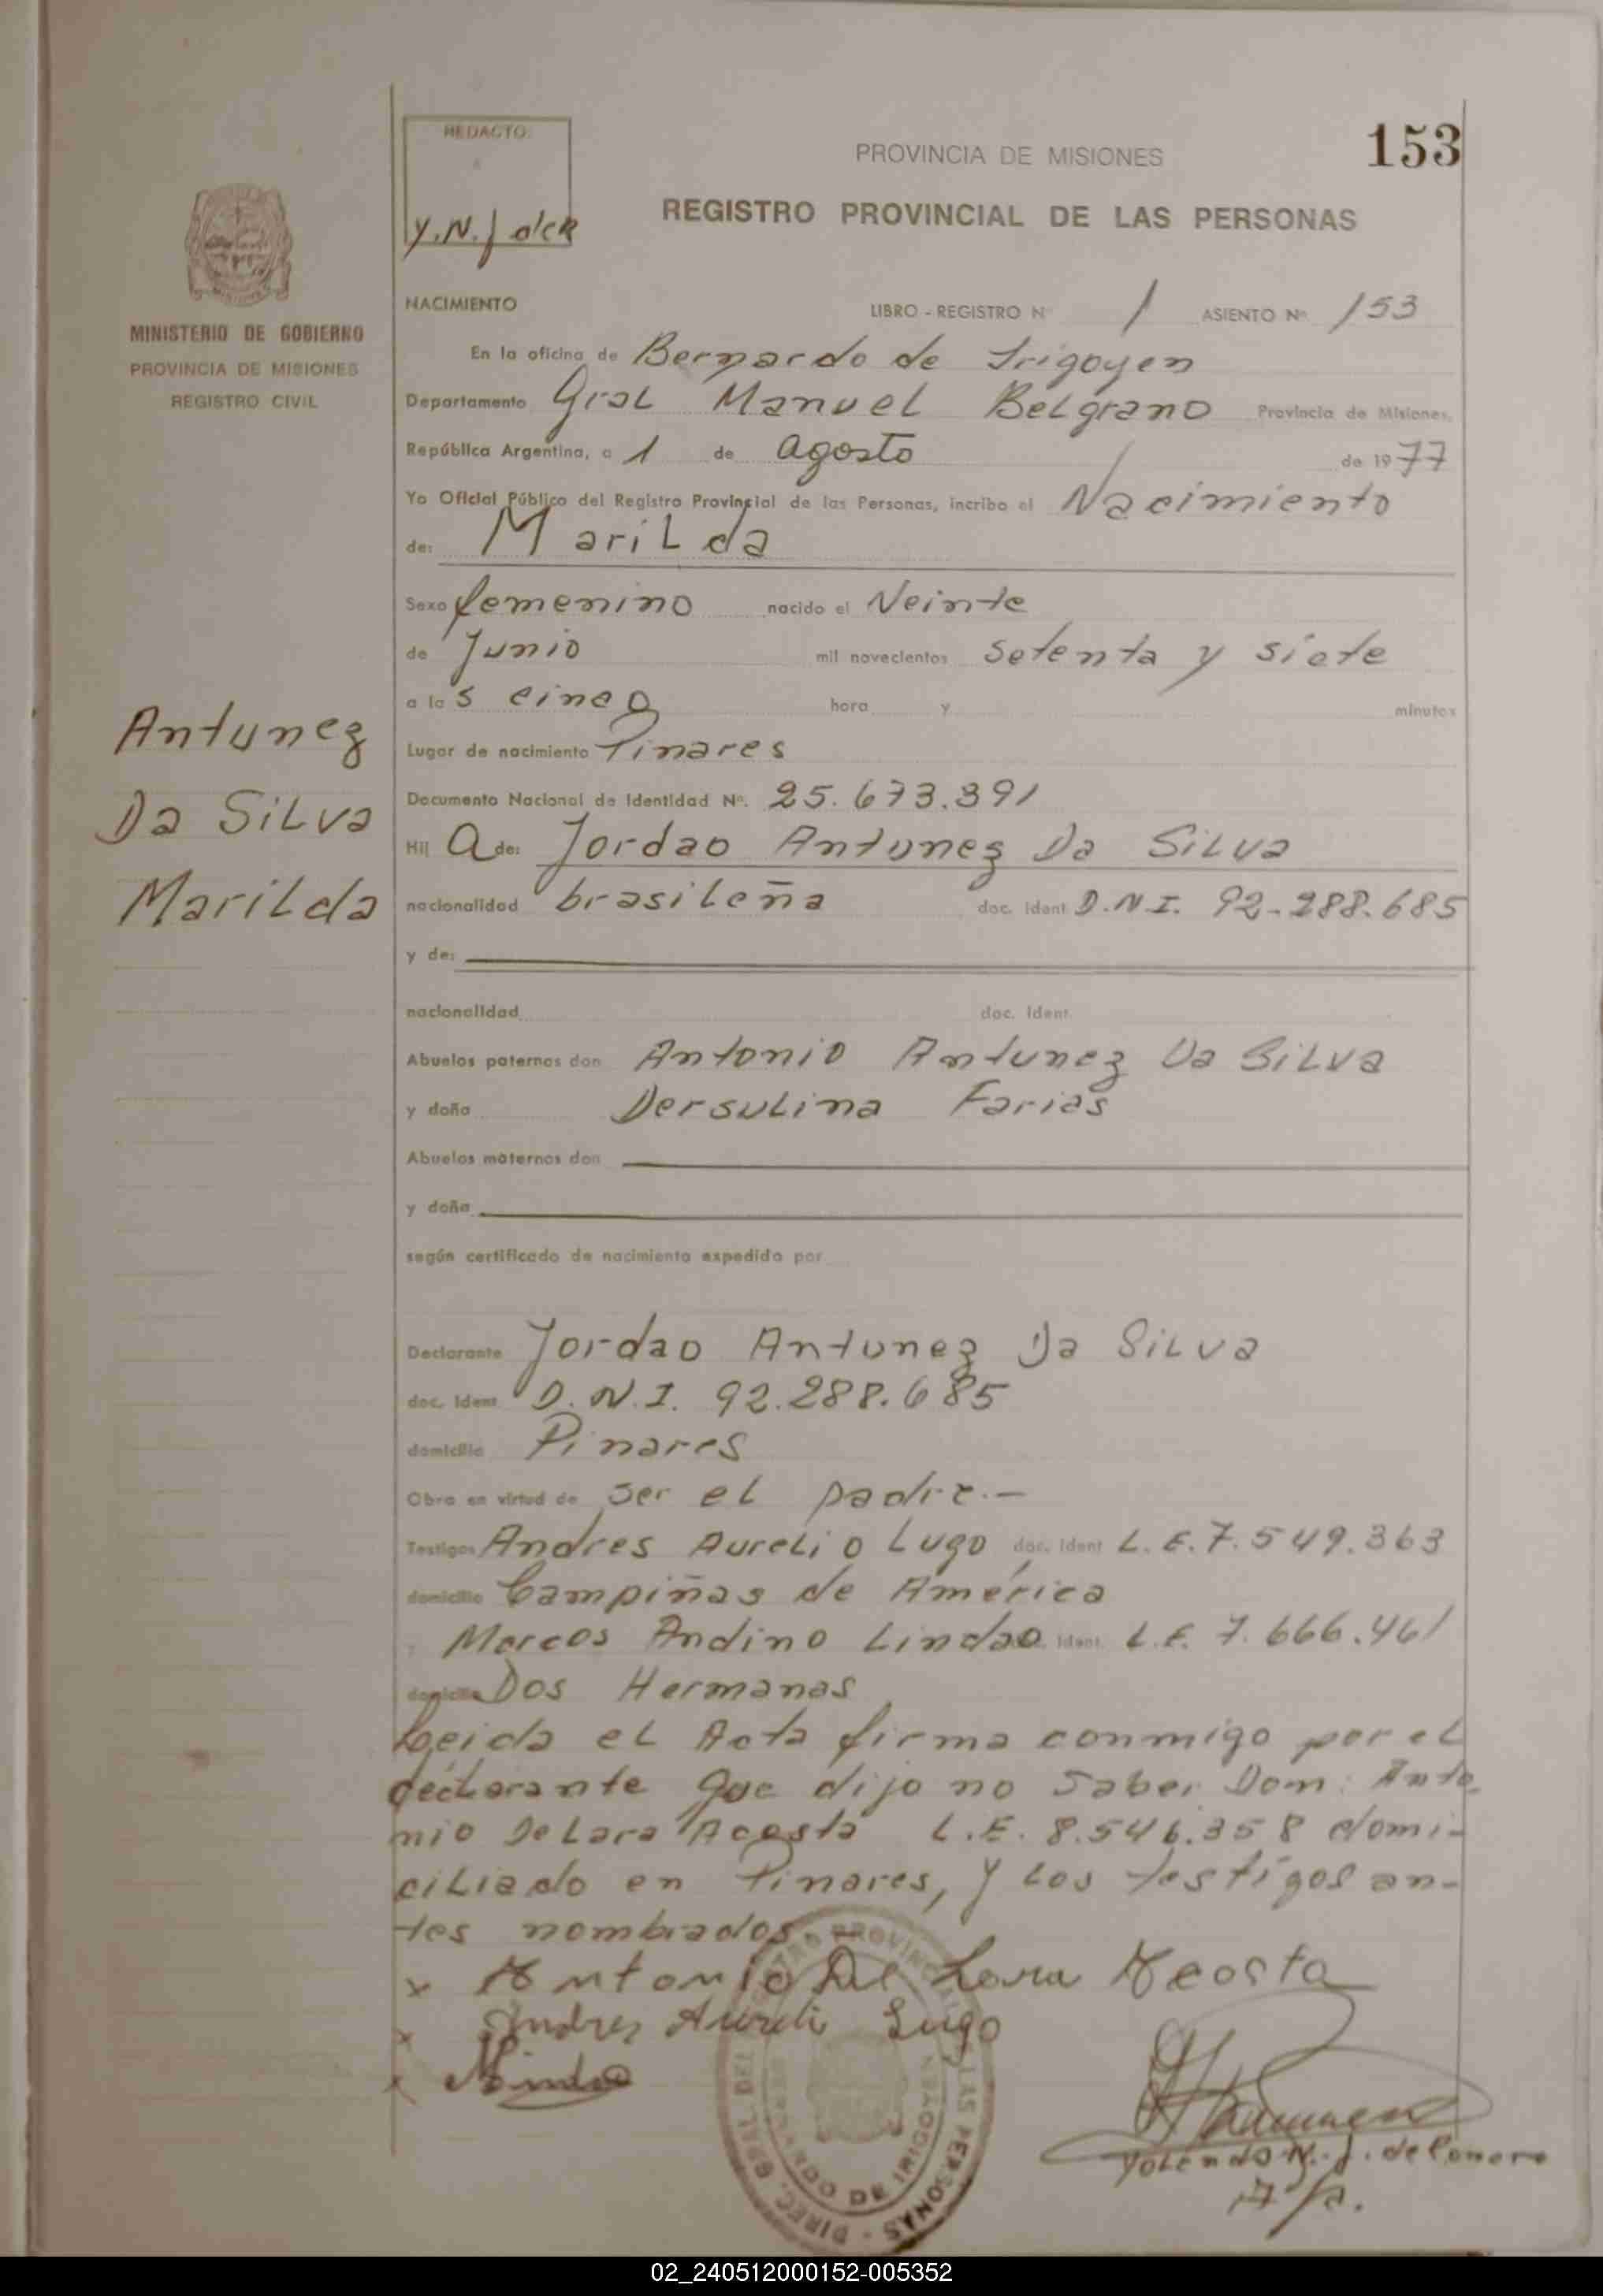 REDACTO:
Y.N.J de R
PROVINCIA DE MISIONES
153
REGISTRO PROVINCIAL DE LAS PERSONAS
MINISTERIO DE GOBIERNO
PROVINCIA DE MISIONES
REGISTRO CIVIL
NACIMIENTO LIBRO - REGISTRO Nº 1 ASIENTO Nº 153
En la oficina de Bernardo de Irigoyen
Departamento Gral Manuel Belgrano Provincia de Misiones,
República Argentina, a 1 de agosto de 1977
Yo Oficial Público del Registro Provincial de las Personas, incribo el Nacimiento
de: Marilda
Sexo femenino nacido el Veinte
de Junio mil novecientos setenta y siete
a las cinco hora y minutos
Lugar de nacimiento Pinares
Documento Nacional de Identidad Nº. 25.673.391
Hij a de: Jordao Antunez Da Silva
nacionalidad brasileña doc. ident D.N.I. 92-288.685
y de:
nacionalidad doc. ident.
Antunez
Da Silva
Marilda
Abuelos paternos don Antonio Antunez Da Silva
y doña Dersulina Farias
Abuelos maternos don
y doña
según certificado de nacimiento expedido por
Declarante Jordao Antunez Da Silva
doc. ident D.N.I. 92.288.685
domicilio Pinares
Obra en virtud de ser el padre.-
Testigos Andres Aurelio Lugo doc. ident L.E. 7.549.363
domicilio Campiñas de América
y Marcos Andino Lindao ident. L.E. 7.666.461
domicilio Dos Hermanas
Leida el Acta firma conmigo por el
declarante que dijo no saber Dom: Anto
nio De Lara Acosta L.E. 8.546.358 domi-
ciliado en Pinares, y los testigos an-
tes nombrados.
x Antonio De Lara Acosta
x Andres Aureli Lugo
x
DIREC. GRAL. DEL REGISTRO PROVINCIAL DE LAS PERSONAS
BERNARDO DE IRIGOYEN
02_240512000152-005352